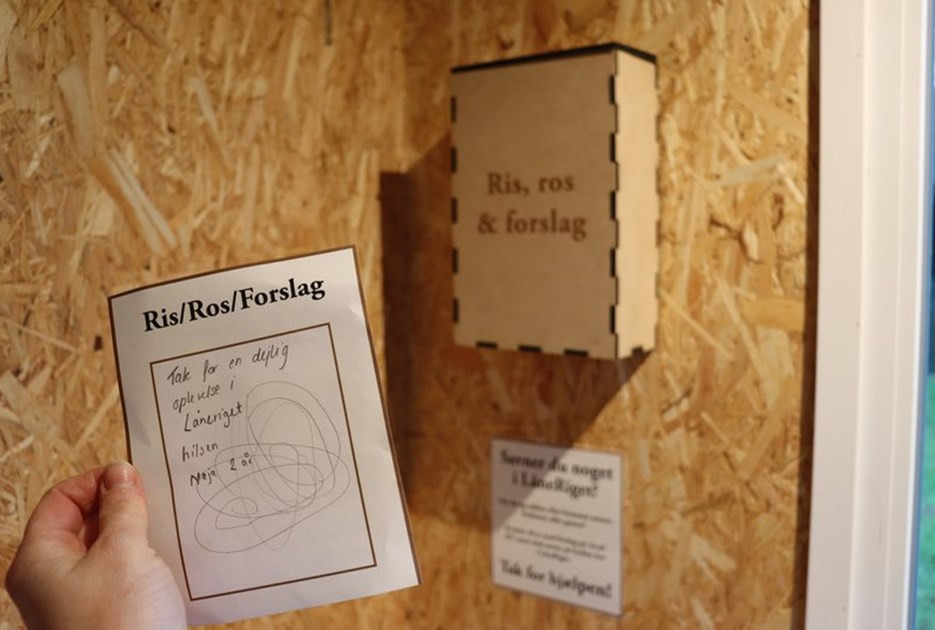 Ris, ros
& forslag
Ris/Ros/Forslag
Tak for en dejlig
oplevelse i
Låneriget
hilsen
Maja 2 år
Savner du noget
i LåneRiget?
Tak for hjælpen!